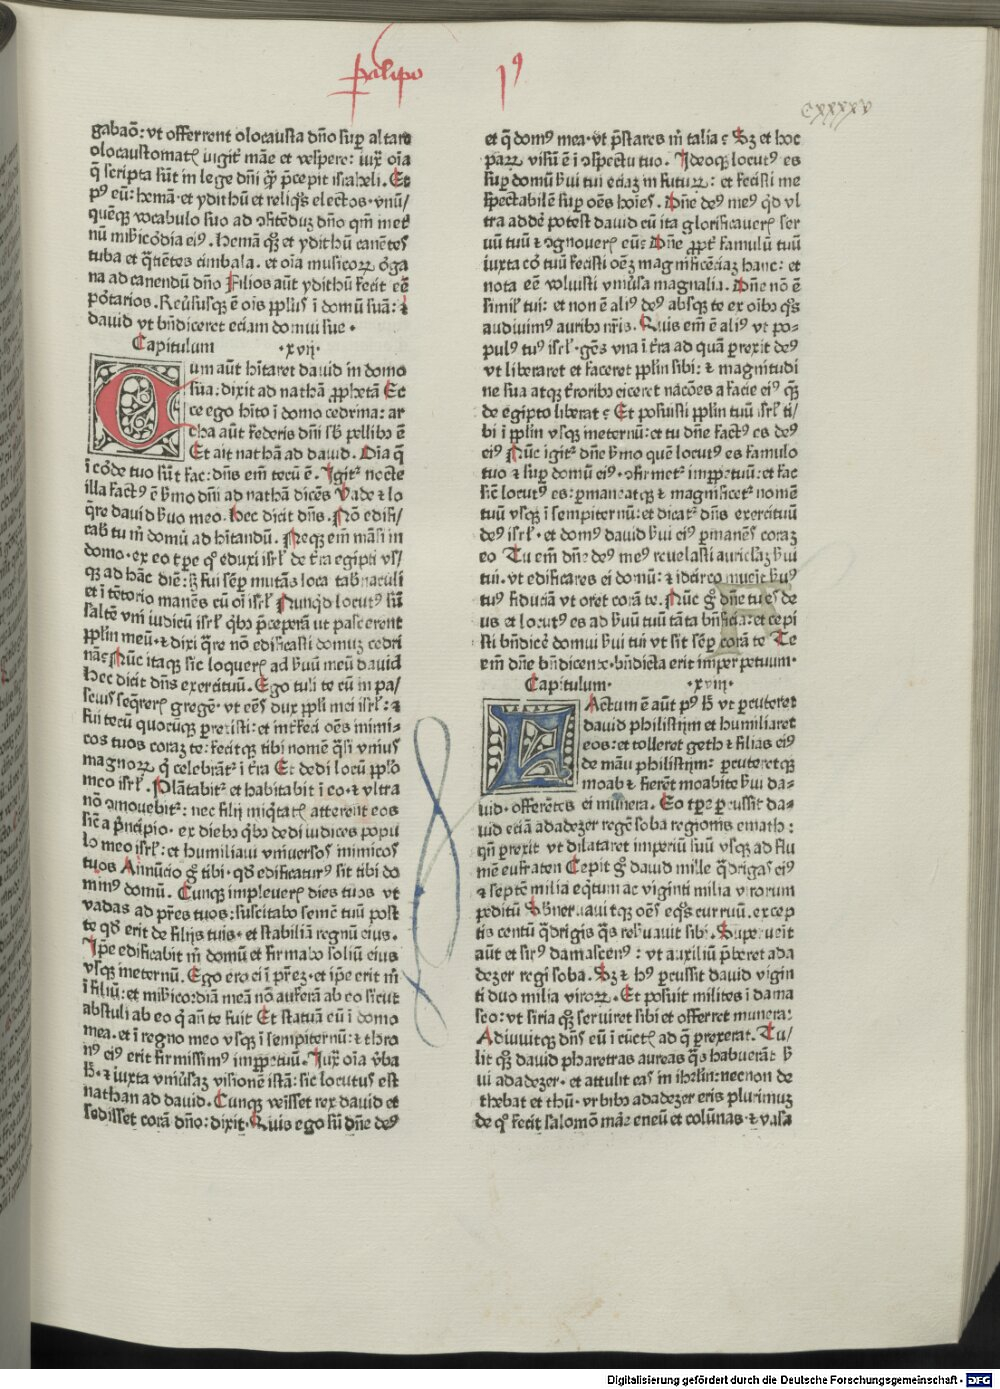 gabaō: vt offerrent olocausta dño suꝑ altare
olocaustomatꝭ iugitꝰ māe et vespere: iuxᷓ oīa
q̄ scripta sūt in lege dñi qᷓ p̄cepit israheli. Et
pꝰ eū: hemā · et ydithū et reliqꝰs electos · vnū/
quēqꝫ vocabulo suo ad ꝯfitēduꝫ dño qm̄ metꝰ
nū mīẜicōdia eiꝰ. Hemā qꝫ et ydithū canētes
tuba et q̄tiētes cimbala . et oīa musicoꝝ ōga
na ad canendū dño Filios aūt ydithū fecit eē
pōtarios. Reūsusqꝫ ē oīs pplūs ī domū suā: ⁊
dauid vt bn̄diceret eciam domui sue ·
Capitulum ·xvij·
CUm aūt hītaret dauid in domo
sua: dixit ad nathā ꝓphetā Ec
ce ego hīto ī domo cedrina: ar
cha aūt federis dñi sb̄ pellibꝰ ē
Et ait nathā ad dauid. Oīa q̄
ī cōde tuo sūt fac: dñs em̄ tecū ē. Igitꝰ nocte
illa factꝰ ē ẜmo dñi ad nathā dicēs Vade ⁊ lo
q̄re dauid ẜuo meo. Hec dicit dñs. Nō edifi/
cabꝭ tu m̄ domū ad hītandū. Neqꝫ em̄ māsi in
domo · ex eo tꝑe qꝰ eduxi isrl̄ de t̄ra egipti vs/
qꝫ ad hāc diē: ꝫ fui sēꝑ mutās loca tabnaculi
et ī tētorio manēs cū oī isrl̄ Nunqͥd locutꝰ sū
saltē vni iudicū isrl̄ qͥbꝰ p̄ceperā vt pascerent
pplm̄ meū · ⁊ dixi q̄re nō edificasti domuꝫ cedri
nā Nūc itaqꝫ sic loqueꝭ ad ẜuū meū dauid
Hec dicit dñs exercituū. Ego tuli te cū in pa/
scuis seq̄reꝭ gregē · vt eēs dux ppli mei isrl̄: ⁊
fui tecū quocūqꝫ ꝑrexisti: et intfeci oēs inimi-
cos tuos coraꝫ te: feciqꝫ tibi nomē qͣsi vnius
magnoꝝ qͥ celebrātꝰ ī t̄ra Et dedi locū pplo
meo isrl̄. Plātabitꝰ et habitabit ī eo · ⁊ vltra
nō ꝯmouebitꝰ: nec filij iniqͥtatꝭ atterent eos
sicē a pͥncipio · ex diebꝰ qͥbꝰ dedi iudices popu
lo meo isrl̄: et humiliaui vniuersos inimicos
tuos Annūcio gͦ tibi · qd̄ edificaturꝰ sit tibi do
minꝰ domū. Cunqꝫ impleueꝭ dies tuos vt
vadas ad pr̄es tuos: suscitabo semē tuū post
te qd̄ erit de filijs tuis · et stabiliā regnū eius.
Ipē edificabit m̄ domū et firmabo soliū eius
vsqꝫ ineternū. Ego ero ei ī pr̄eꝫ · et ipē erit m̄
ī filiū: et mīẜicordiā meā nō auferā ab eo sicut
abstuli ab eo qͥ an̄ te fuit Et statuā eū ī domo
mea · et ī regno meo vsqꝫ ī sempiternū: ⁊ thro
nꝰ eiꝰ erit firmissimꝰ imꝑpetuū. Iuxᷓ oīa v̄ba
hͨ · ⁊ iuxta vniūsaꝫ visionē istā: sic locutus est
nathan ad dauid. Cunqꝫ venisset rex dauid et
sedisset corā dño: dixit. Quis ego sū dñe deꝰ
et q̄ domꝰ mea · vt p̄stares m̄ talia ⸮ Sꝫ et hoc
paꝝ visū ē ī ꝯspectu tuo. Ideoqꝫ locutꝰ es
suꝑ domū ẜui tui eciaꝫ in futuꝝ: et fecisti me
spectabilē suꝑ oēs hoīes. Dñe deꝰ meꝰ qͥd vl
tra addē potest dauid cū ita glorificaueꝭ ser
uū tuū ⁊ ꝯgnoueꝭ eū: Dñe ꝓpt̄ famulū tuū
iuxta cō tuū fecisti oēꝫ magnificēciaꝫ hanc: et
nota eē voluisti vniūsa magnalia. Dñe nō ē
similꝭ tui: et non ē aliꝰ deꝰ absqꝫ te ex oībꝰ qͦs
audiuimꝰ auribꝰ nr̄is. Quis em̄ ē aliꝰ vt po-
pulꝰ tuꝰ isrl̄ · gēs vna ī t̄ra ad quā ꝑrexit deꝰ
vt liberaret et faceret pplm̄ sibi: ⁊ magnitudi
ne sua atqꝫ t̄roribꝰ eiceret nacōes a facie eiꝰ qᷓꝫ
de egipto liberat ⸮ Et posuisti pplm̄ tuū isrl̄ ti/
bi ī pplm̄ vsqꝫ ineternū: et tu dñe factꝰ es deꝰ
eiꝰ Nūc igitꝰ dñe ẜmo quē locutꝰ es famulo
tuo ⁊ suꝑ domū eiꝰ · ꝯfirmetꝰ imꝑpetuū: et fac
sicē locutꝰ es: ꝑmaneatqꝫ ⁊ magnificetꝰ nomē
tuū vsqꝫ ī sempiternū: et dicatꝰ dñs exercituū
deꝰ isrl̄ · et domꝰ dauid ẜui eiꝰ ꝑmanēs coraꝫ
eo Tu em̄ dñe deꝰ meꝰ reuelasti auriclaꝫ ẜui
tui · vt edificares ei domū: ⁊ idcirco inueīt ẜuꝰ
tuꝰ fiduciā vt oret corā te. Nūc gͦ dñe tu es de
us et locutꝰ es ad ẜuū tuū tāta bn̄ficia: et cepi
sti bn̄dicē domui ẜui tui vt sit sēꝑ corā te Te
em̄ dñe bn̄dicente · bn̄dicta erit imperpetuum ·
Capitulum · ·xviij·
FActum ē aūt pꝰ hͨ vt ꝑcuteret
dauid philistijm et humiliaret
eos: et tolleret geth ⁊ filias eiꝰ
de māu philistijm: ꝑcuteretqꝫ
moab ⁊ fierēt moabite ẜui da-
uid · offerētes ei munera. Eo tꝑe ꝑcussit da-
uid eciā adadezer regē soba regionis emath:
qn̄ ꝑrexit vt dilataret imperiū suū vsqꝫ ad flu
mē eufraten Cepit gͦ dauid mille q̄drigas eiꝰ
⁊ septē milia eqͥtum ac viginti milia virorum
peditū Sbneruauitqꝫ oēs eqͦs curruū · excep
tis centū q̄drigis qͣs reẜuauit sibi. Superueīt
aūt et sirꝰ damascenꝰ: vt auxiliū p̄beret ada
dezer regi soba. Sꝫ ⁊ hꝰ ꝑcussit dauid vigin
ti duo milia viroꝝ. Et posuit milites ī dama
sco: vt siria qꝫ seruiret sibi et offerret munera:
Adiuuitqꝫ dñs eū ī cūctꝭ ad q̄ ꝑrexerat. Tu/
lit qꝫ dauid pharetras aureas qͣs habuerāt ẜ
ui adadezer · et attulit eas in ihrlm: necnon de
thebat et thū · vrbibꝰ adadezer eris plurimuꝫ
de qͦ fecit salomō māe eneū et colūnas · ⁊ vasa
Digitalisierung gefördert durch die Deutsche Forschungsgemeinschaft - DFG